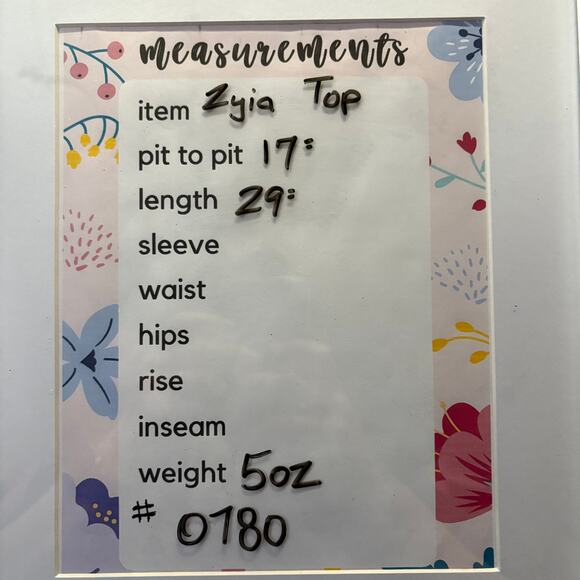 measurements
item Zyia Top
pit to pit 17"
length 29"
sleeve
waist
hips
rise
inseam
weight 5oz
# 0780